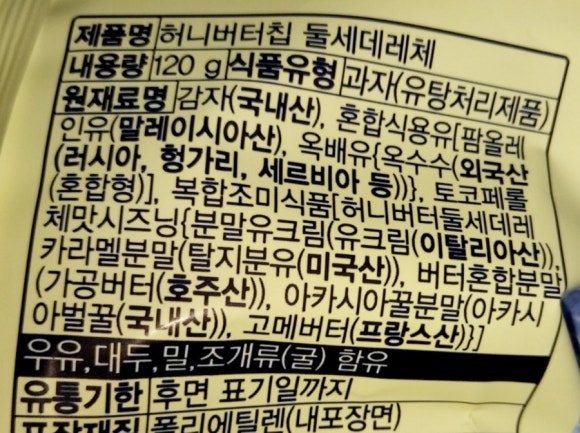 제품명 허니버터칩 둘세데레체
내용량 120 g 식품유형 과자(유탕처리제품)
원재료명 감자(국내산), 혼합식용유[팜올레
인유(말레이시아산), 옥배유{옥수수(외국산
(러시아, 헝가리, 세르비아 등))}, 토코페롤
(혼합형)], 복합조미식품[허니버터둘세데레
체맛시즈닝{분말유크림(유크림(이탈리아산)),
카라멜분말(탈지분유(미국산)), 버터혼합분말
(가공버터(호주산)), 아카시아꿀분말(아카시
아벌꿀(국내산)), 고메버터(프랑스산)}]
우유,대두,밀,조개류(굴) 함유
유통기한 후면 표기일까지
포장재질 폴리에틸렌(내포장면)